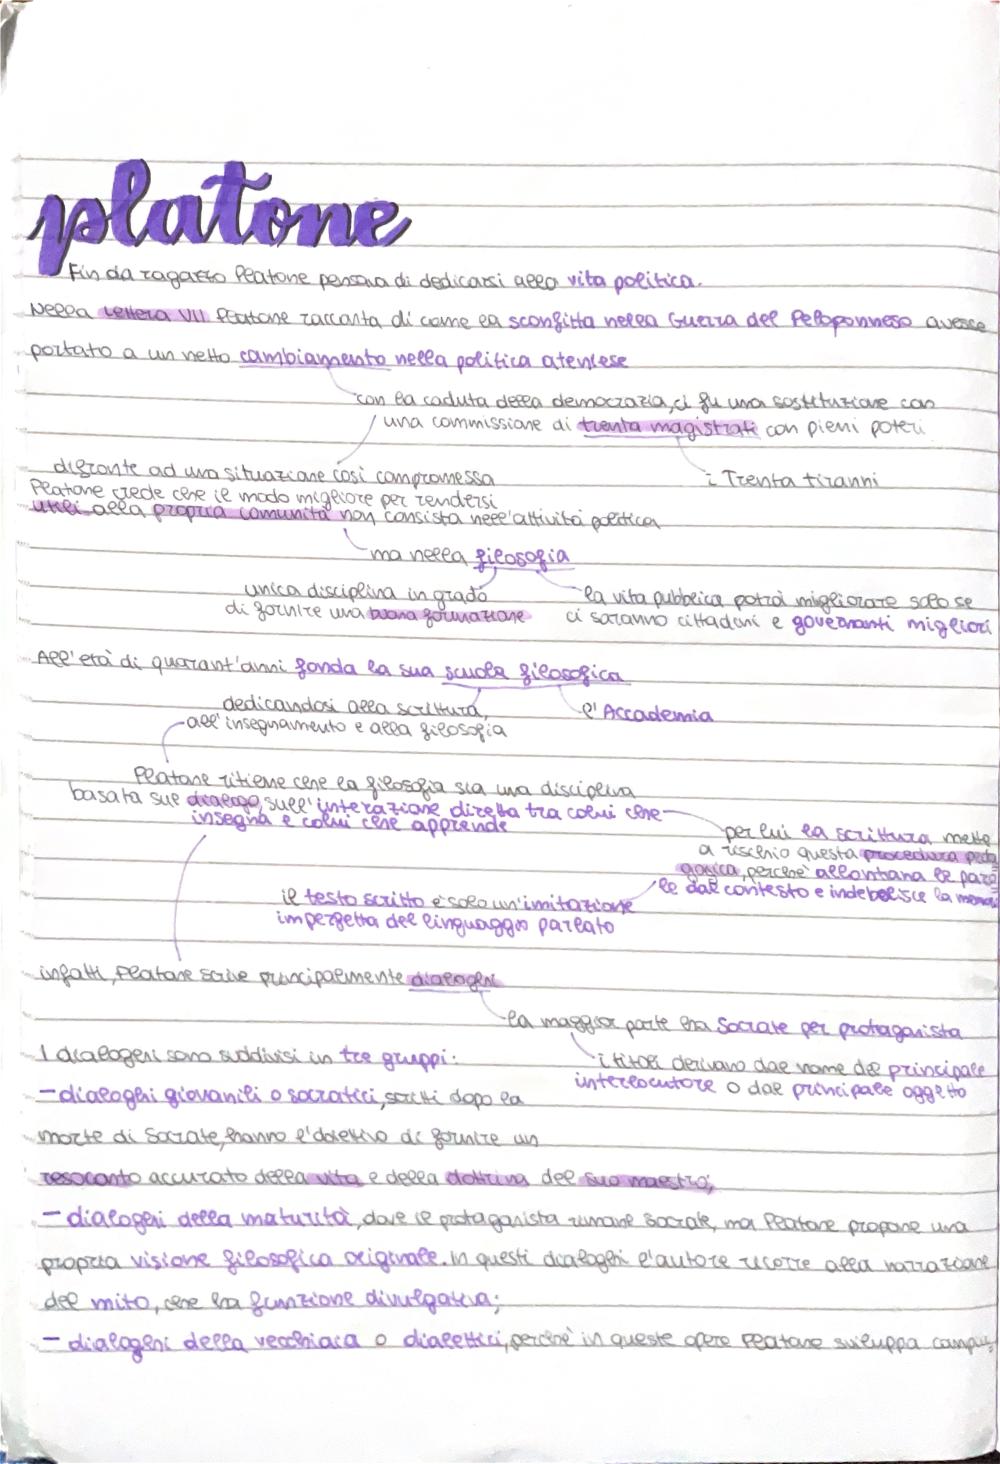 platone
Fin da ragazzo Platone pensava di dedicarsi alla vita politica.
Nella lettera VII Platone racconta di come la sconfitta nella Guerra del Peloponneso avesse
portato a un netto cambiamento nella politica ateniese
con la caduta della democrazia, ci fu una sostituzione con
una commissione di trenta magistrati con pieni poteri
i Trenta tiranni
difronte ad una situazione così compromessa
Platone crede che il modo migliore per rendersi
utili alla propria comunità non consista nell'attività politica
ma nella filosofia
unica disciplina in grado
di fornire una buona formazione
la vita pubblica potrà migliorare solo se
ci saranno cittadini e governanti migliori
All'età di quarant'anni fonda la sua scuola filosofica
dedicandosi alla scrittura,
all'insegnamento e alla filosofia
l'Accademia
Platone ritiene che la filosofia sia una disciplina
basata sul dialogo, sull'interazione diretta tra colui che
insegna e colui che apprende
per lui la scrittura mette
a rischio questa procedura peda
gogica, perché allontana le paro
le dal contesto e indebolisce la memoria
il testo scritto è solo un'imitazione
imperfetta del linguaggio parlato
infatti, Platone scrive principalmente dialoghi
la maggior parte ha Socrate per protagonista
i titoli derivano dal nome del principale
interlocutore o dal principale oggetto
I dialoghi sono suddivisi in tre gruppi:
- dialoghi giovanili o socratici, scritti dopo la
morte di Socrate, hanno l'obiettivo di fornire un
resoconto accurato della vita e della dottrina del suo maestro;
- dialoghi della maturità, dove il protagonista rimane Socrate, ma Platone propone una
propria visione filosofica originale. In questi dialoghi l'autore ricorre alla narrazione
del mito, che ha funzione divulgativa;
- dialoghi della vecchiaia o dialettici, perché in queste opere Platone sviluppa